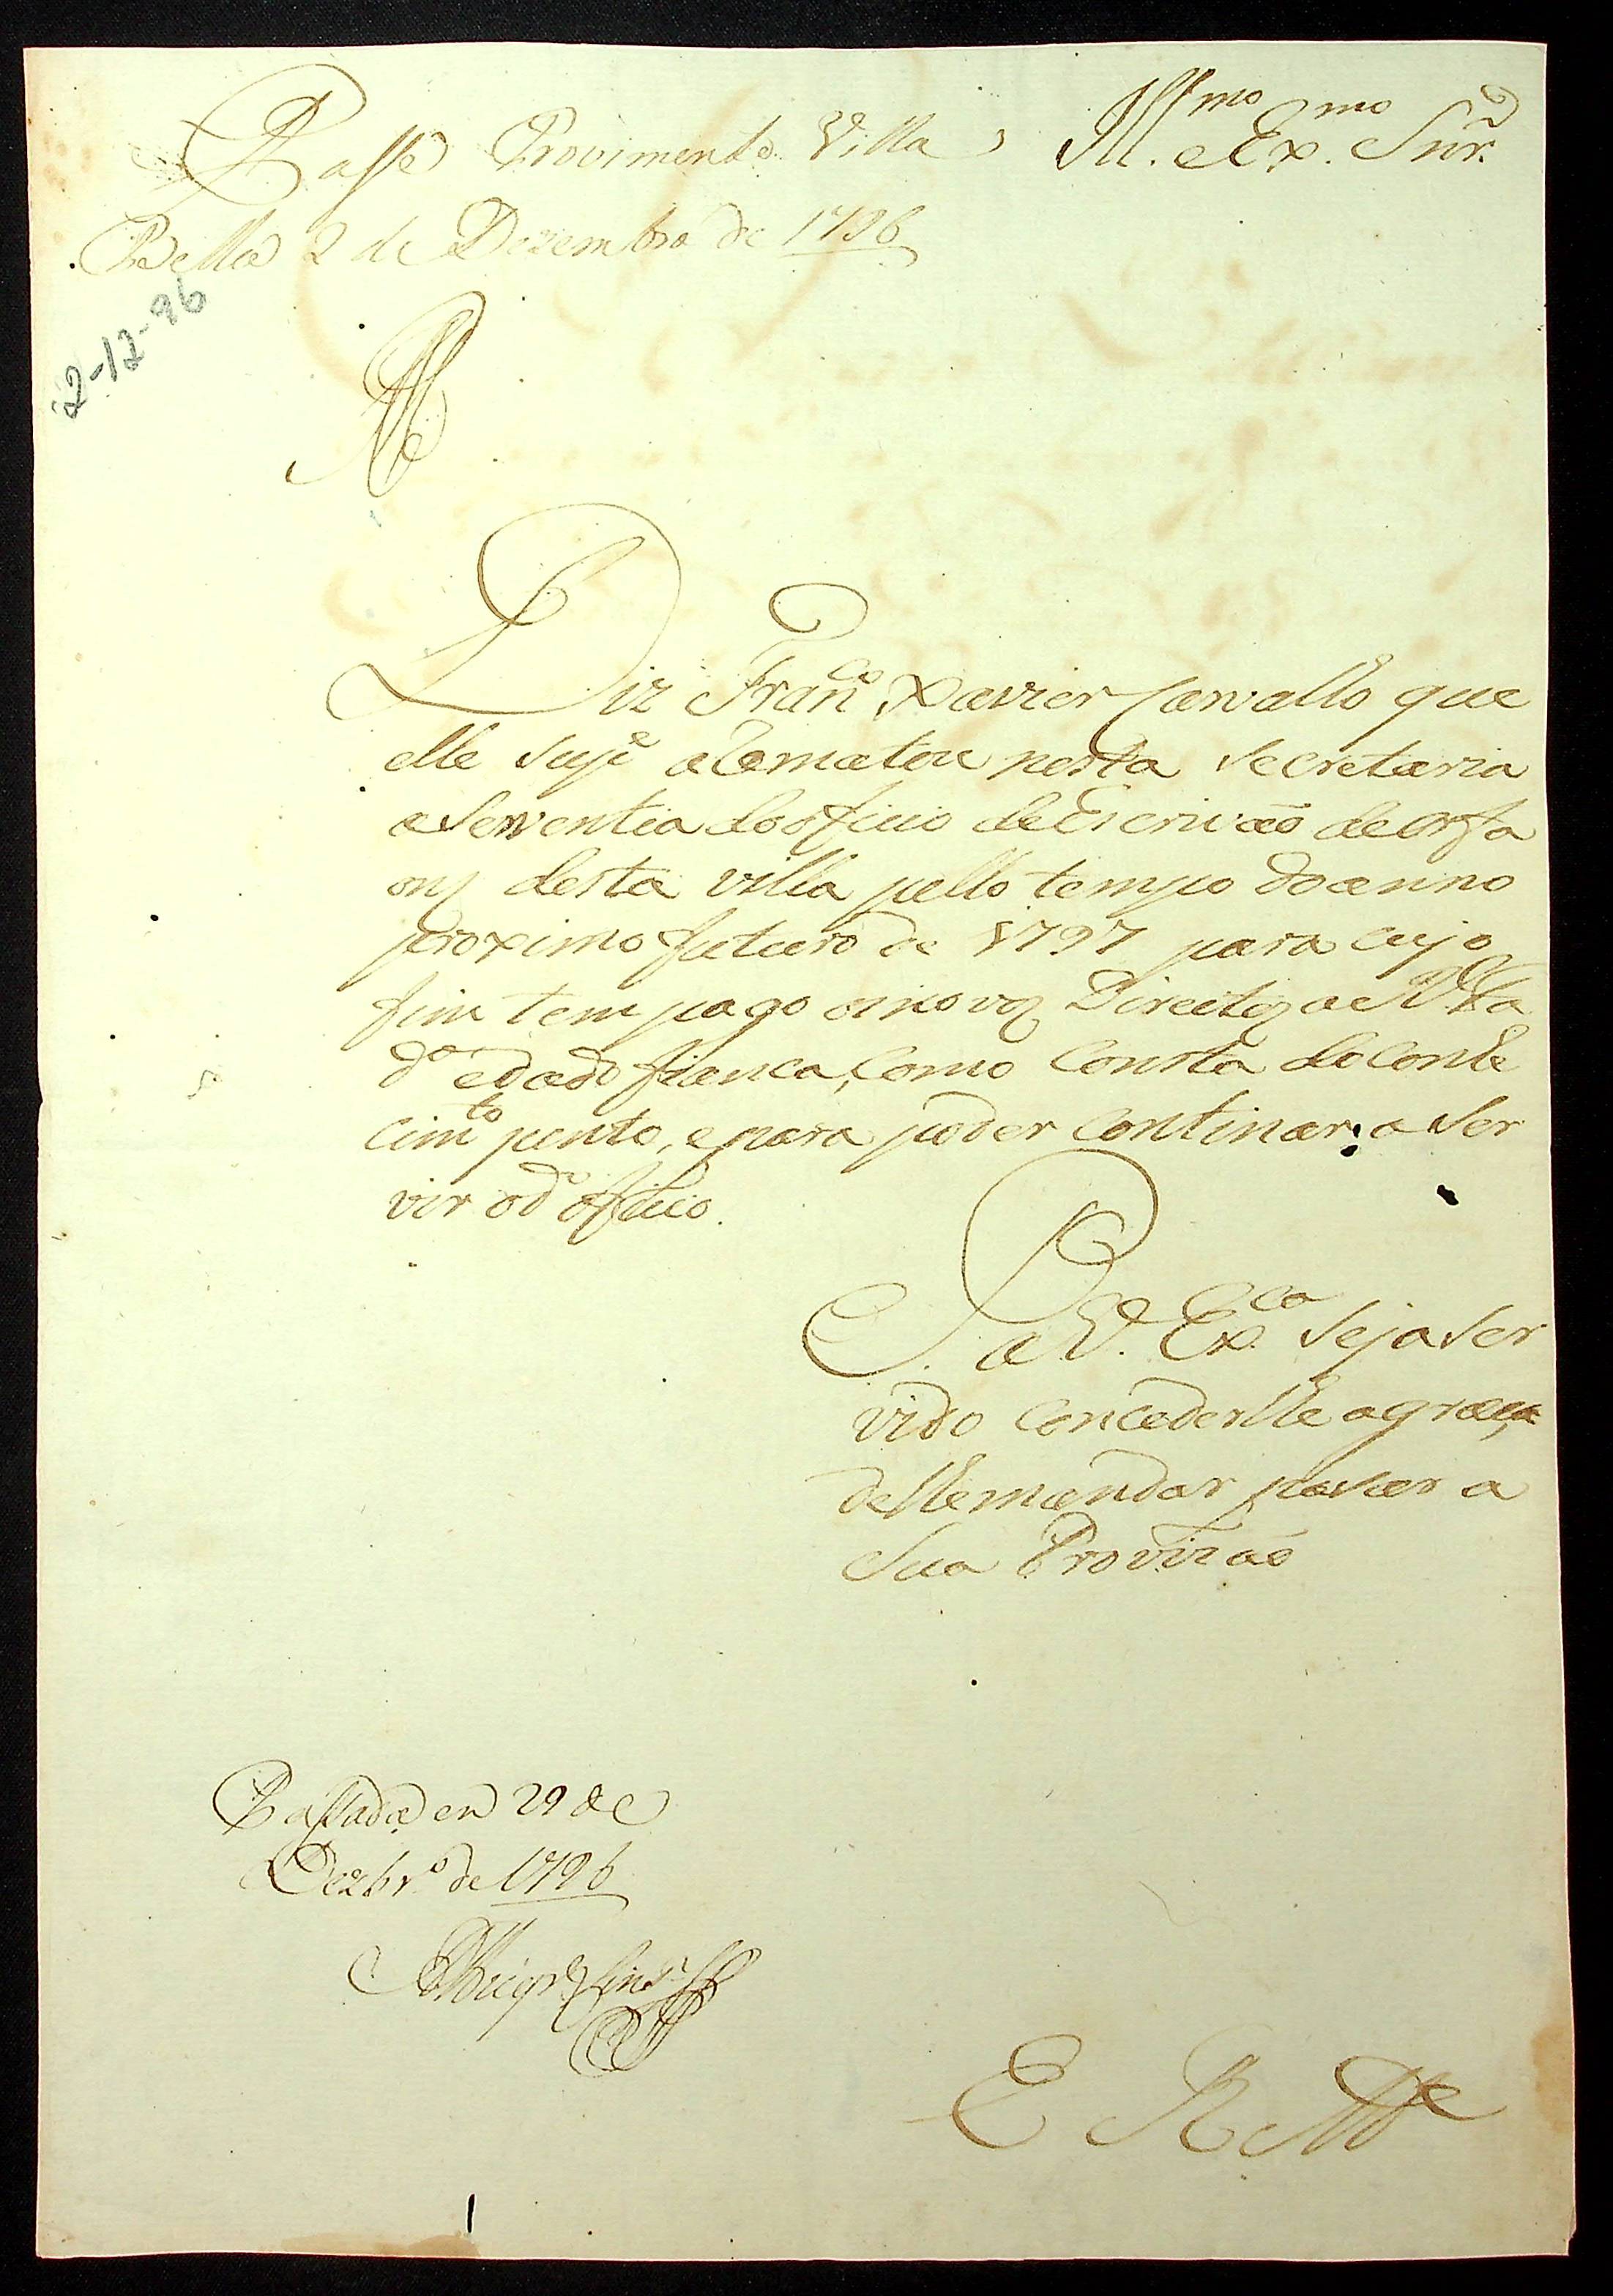 Passe Provimento. Villa
Bella 2 de Dezembro de 1796
Illmo. e Exmo. Snr.
2-12-96
Diz Franco Xavier Carvalho que
elle Supe aRematou nesta Secretaria
a Serventia do oficio de Escrivão de orfa
ons desta villa pello tempo do anno
proximo futuro de 1797 para cujo
fim tem pago os novos Direitos a
do e dado fianca, como Consta do Conhe
cimto junto, e para poder Continar a Ser
vir o do oficio.
P.
a V. Exca. Seja Ser
vido Concederlhe a graça
de lhe mandar passar a
Sua Provizaõ
Passada em 29 de
Dezbro. de 1796
E R Mce